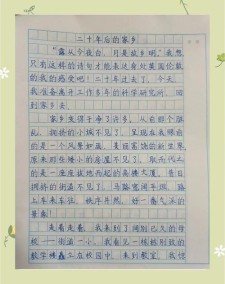 二十年后的家乡
"露从今夜白，月是故乡明。"我想
只有这样的诗句才能表达身处英国伦敦
的我的感受吧！二十年过去了，今天，
我准备离开工作多年的科学研究所，回
到家乡去。
家乡变得干净了许多，从前那个脏
乱、拥挤的小城不见了，呈现在我眼前
的是一个风景如画、美丽富饶的新世界，
原来那些矮小的房屋不见了，取而代之
的是一座座拔地而起的高楼大厦。昔日
拥挤的街道不见了，马路宽阔平坦，路
上车来车往，秩序井然，好一番气派的
景象！
走着走着，我来到了阔别已久的母
校——街道一小。我看见一栋栋别致的
教学楼矗立在校园中，来到教室，我惊